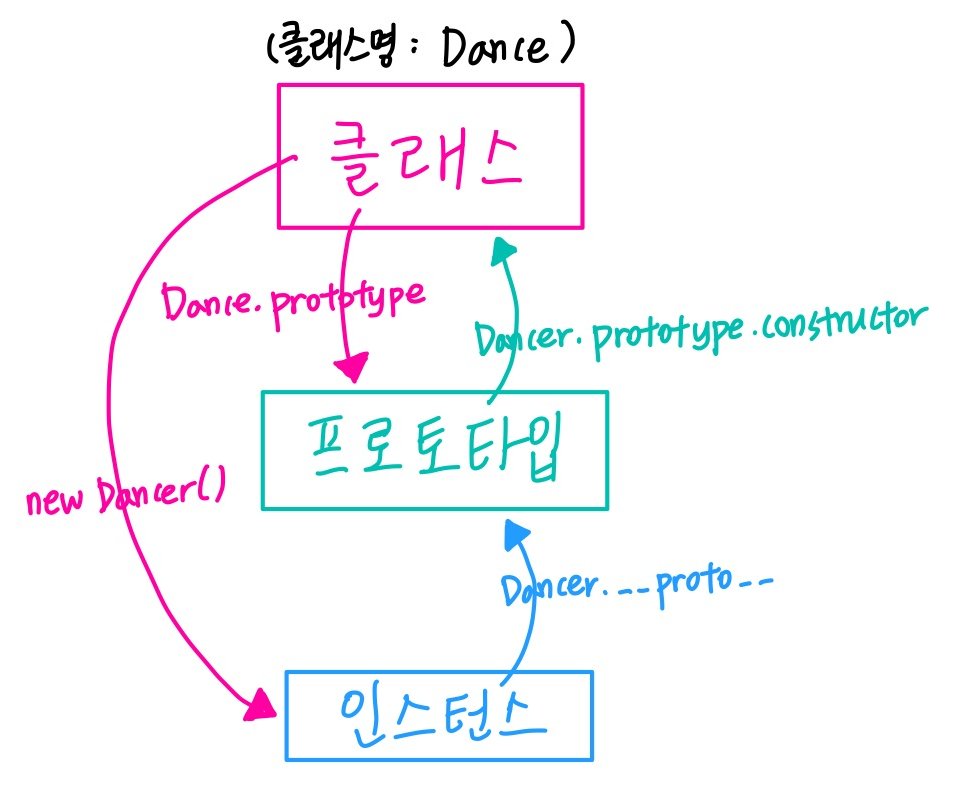 (클래스명 : Dance)
클래스
Dance.prototype
Dancer.prototype.constructor
프로토타입
new Dancer()
Dancer.__proto__
인스턴스